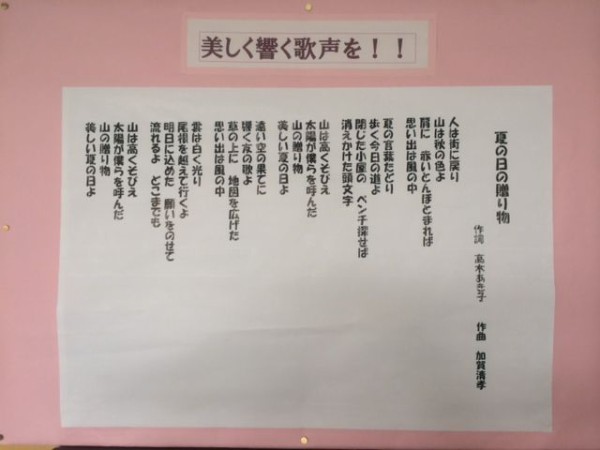 美しく響く歌声を！！
夏の日の贈り物
作詞　高木あきこ　作曲　加賀清孝
人は街に戻り
山は秋の色よ
肩に　赤いとんぼとまれば
思い出は風の中
夏の言葉たどり
歩く今日の道よ
閉じた小屋の　ベンチ探せば
消えかけた頭文字
山は高くそびえ
太陽が僕らを呼んだ
山の贈り物
美しい夏の日よ
遠い空の果てに
響く友の歌よ
草の上に　地図を広げた
思い出は風の中
雲は白く光り
尾根を越えて行くよ
明日に込めた　願いをのせて
流れるよ　どこまでも
山は高くそびえ
太陽が僕らを呼んだ
山の贈り物
美しい夏の日よ